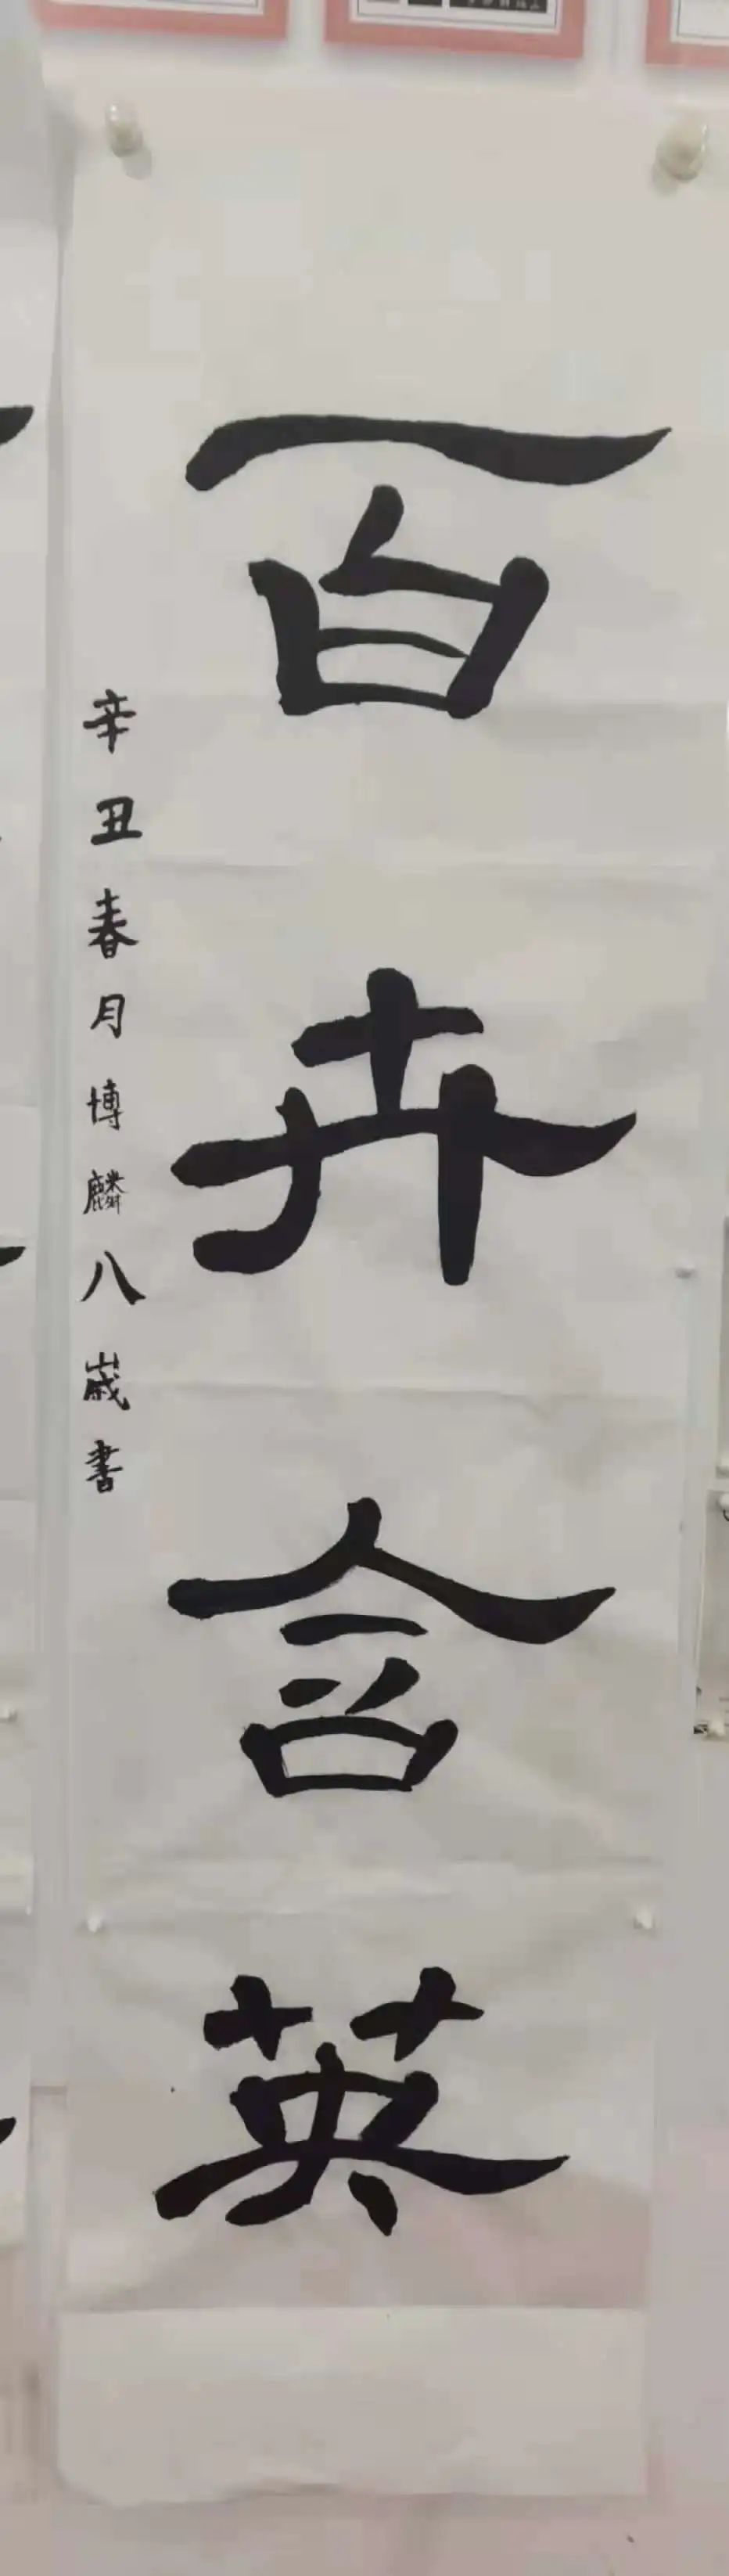 百卉含英
辛丑春月博麟八歲書